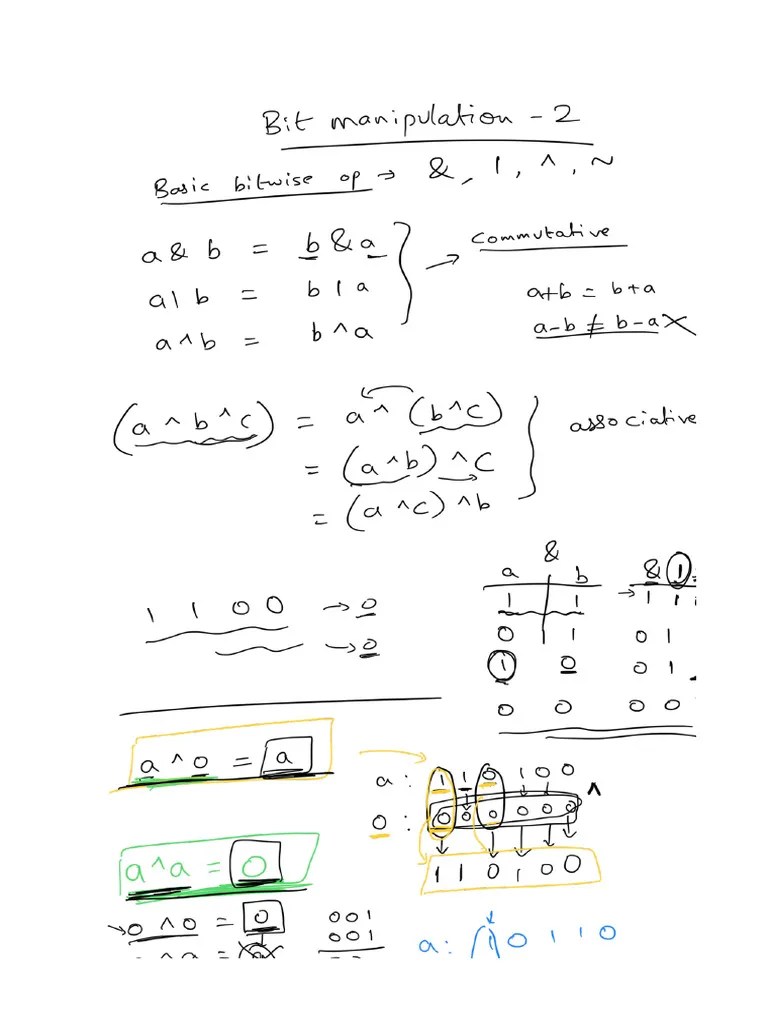 Bit manipulation - 2
Basic bitwise op → &, |, ^, ~
a & b = b & a
a | b = b | a
a ^ b = b ^ a
Commutative
a+b = b+a
a-b ≠ b-a
(a ^ b ^ c) = a ^ (b ^ c)
= (a ^ b) ^ c
= (a ^ c) ^ b
associative
1 1 0 0 → 0
→ 0
&
a b
1 1
0 1
1 0
0 0
& 1
→ 1 1 1
0 1
0 1
0 0
a ^ 0 = a
a : 1 1 0 1 0 0
^
0 : 0 0 0 0 0 0
1 1 0 1 0 0
a ^ a = 0
→ 0 ^ 0 = 0
001
001
a: 1 0 1 1 0